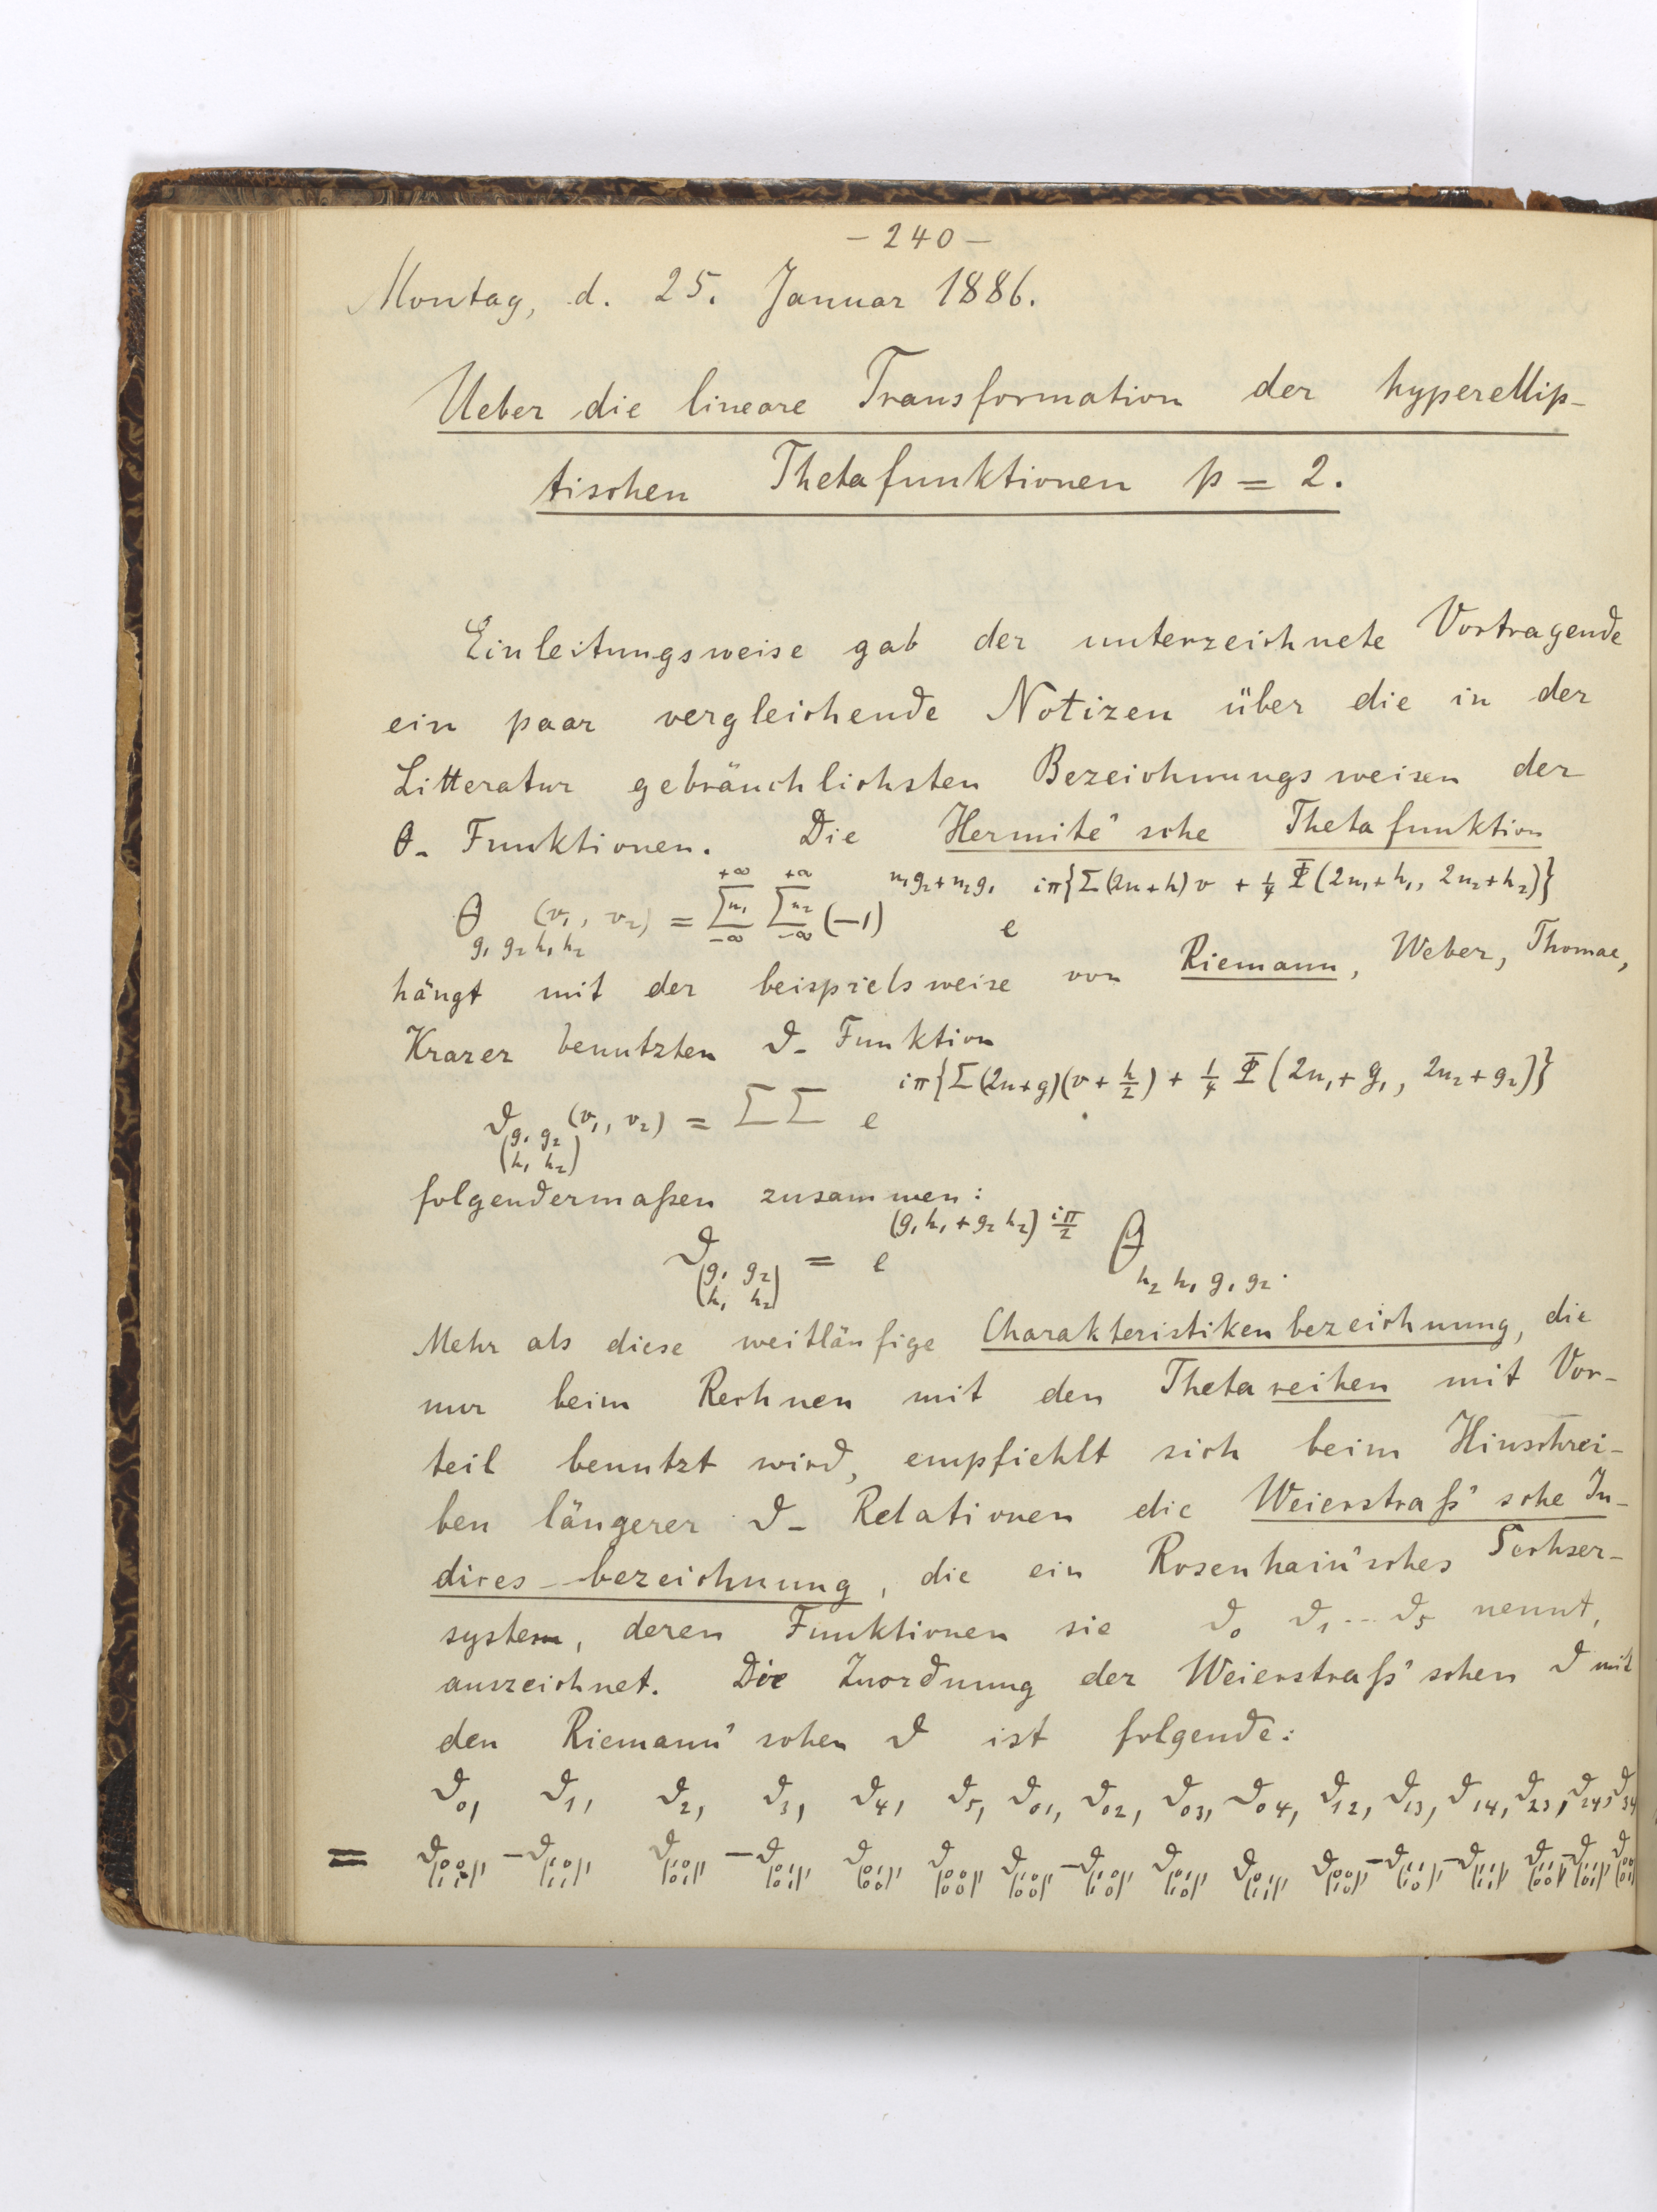 – 240 –
Montag, d. 25. Januar 1886.
Ueber die lineare Transformation der hyperellip-
tischen Thetafunktionen p = 2.
Einleitungsweise gab der unterzeichnete Vortragende
ein paar vergleichende Notizen über die in der
Litteratur gebräuchlichsten Bezeichnungsweisen der
θ- Funktionen. Die Hermite'sche Thetafunktion
θ_{g₁ g₂ h₁ h₂} (v₁, v₂) = Σn₁_{-∞}^{+∞} Σn₂_{-∞}^{+∞} (-1)^{n₁g₂+n₂g₁} e^{iπ{Σ(2n+h)v + ¼ Φ(2n₁+h₁, 2n₂+h₂)}}
hängt mit der beispielsweise von Riemann, Weber, Thomae,
Krazer benutzten ϑ- Funktion
ϑ_{(g₁ g₂ / h₁ h₂)} (v₁, v₂) = ΣΣ e^{iπ{Σ(2n+g)(v + h/2) + ¼ Φ(2n₁+g₁, 2n₂+g₂)}}
folgendermaßen zusammen:
ϑ_{(g₁ g₂ / h₁ h₂)} = e^{(g₁h₁ + g₂h₂) iπ/2} θ_{h₂ h₁ g₁ g₂}.
Mehr als diese weitläufige Charakteristikenbezeichnung, die
nur beim Rechnen mit den Thetareihen mit Vor-
teil benutzt wird, empfiehlt sich beim Hinschrei-
ben längerer ϑ- Relationen die Weierstraß'sche In-
dices-bezeichnung, die ein Rosenhain'sches Sechser-
system, deren Funktionen sie ϑ₀ ϑ₁ ... ϑ₅ nennt,
auszeichnet. Die Zuordnung der Weierstraß'schen ϑ mit
den Riemann'schen ϑ ist folgende:
ϑ₀, ϑ₁, ϑ₂, ϑ₃, ϑ₄, ϑ₅, ϑ₀₁, ϑ₀₂, ϑ₀₃, ϑ₀₄, ϑ₁₂, ϑ₁₃, ϑ₁₄, ϑ₂₃, ϑ₂₄, ϑ₃₄
= ϑ_{(00/11)}, -ϑ_{(10/11)}, ϑ_{(10/01)}, -ϑ_{(01/01)}, ϑ_{(01/00)}, ϑ_{(00/00)} ϑ_{(10/00)}, -ϑ_{(10/10)}, ϑ_{(01/10)}, ϑ_{(01/11)}, ϑ_{(00/10)}, -ϑ_{(11/10)}, -ϑ_{(11/11)}, ϑ_{(11/00)}, -ϑ_{(11/01)}, ϑ_{(00/01)}